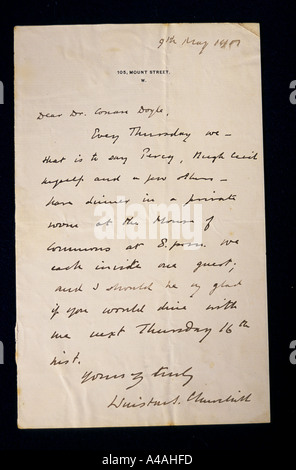 9th May 1901
105, MOUNT STREET.
W.
Dear Dr. Conan Doyle,
Every Thursday we –
that is to say Percy, Hugh Cecil
myself and a few others –
have dinner in a private
room at the House of
Commons at 8. p.m. We
each invite one guest;
and I should be vy glad
if you would dine with
me next Thursday 16th
inst.
Yours vy truly
Winston S. Churchill
alamy
alamy
Image ID: A4AHFD
www.alamy.com